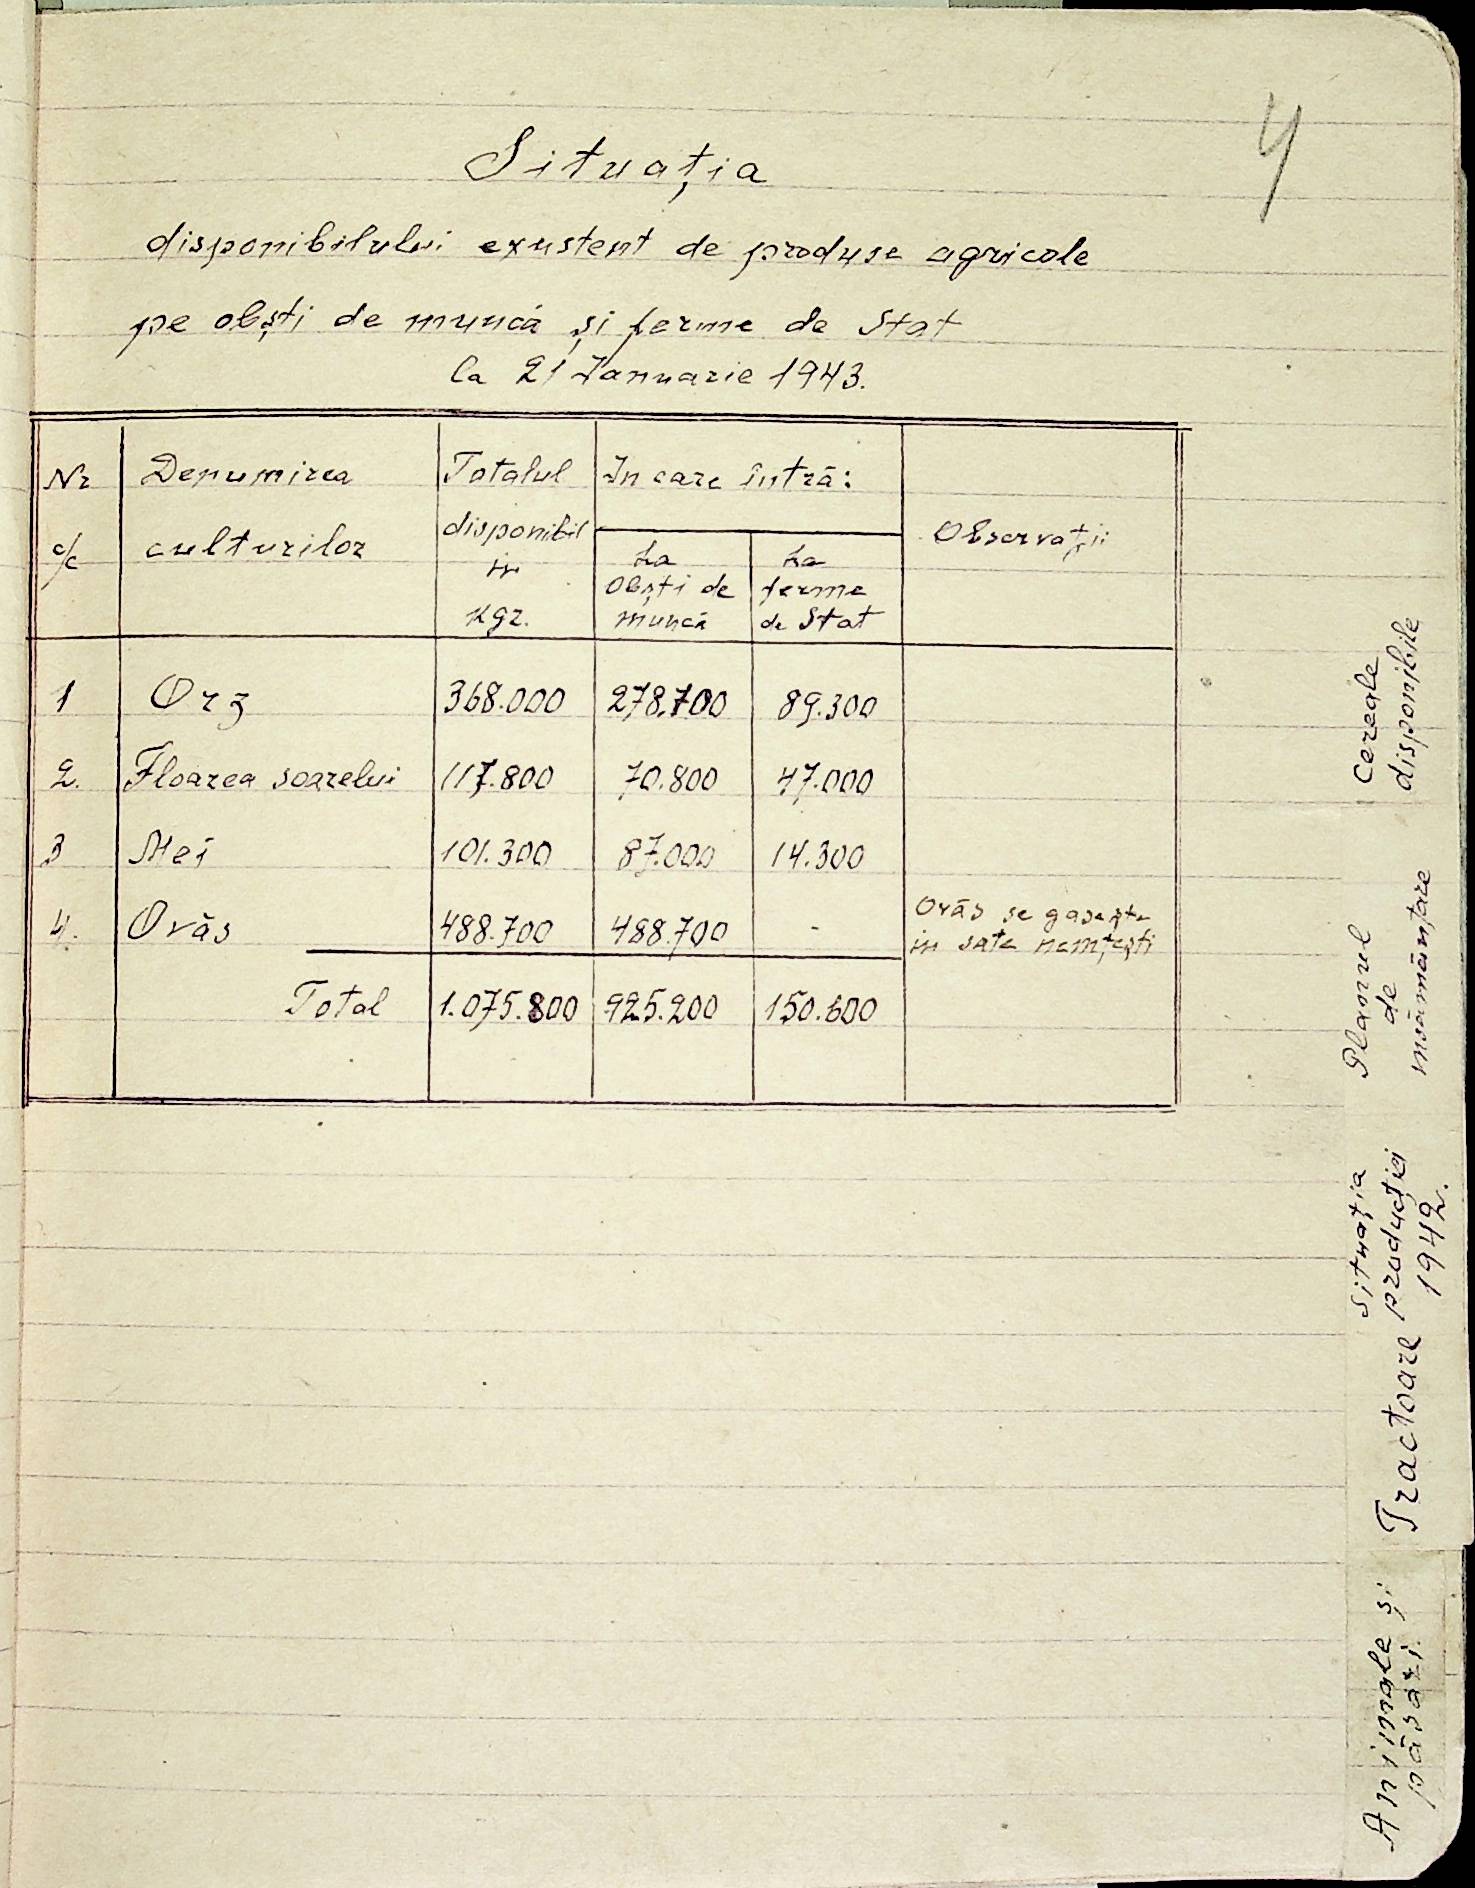 4
Situația
disponibilului existent de produse agricole
pe obști de muncă și ferme de Stat
la 21 Ianuarie 1943.
Nr c/c | Denumirea culturilor | Totalul disponibil in kgr. | In care întră: | Observații
La obști de muncă | La ferme de Stat
1 Orz 368.000 278.700 89.300
2. Floarea soarelui 117.800 70.800 47.000
3 Mei 101.300 87.000 14.300
4. Ovăs 488.700 488.700 - Ovăs se gasește in sate nemțești
Total 1.075.800 925.200 150.600
Cereale
disponibile
Planul
de
însămânțare
Situația
producției
1942.
Tractoare
Animale și
păsări.